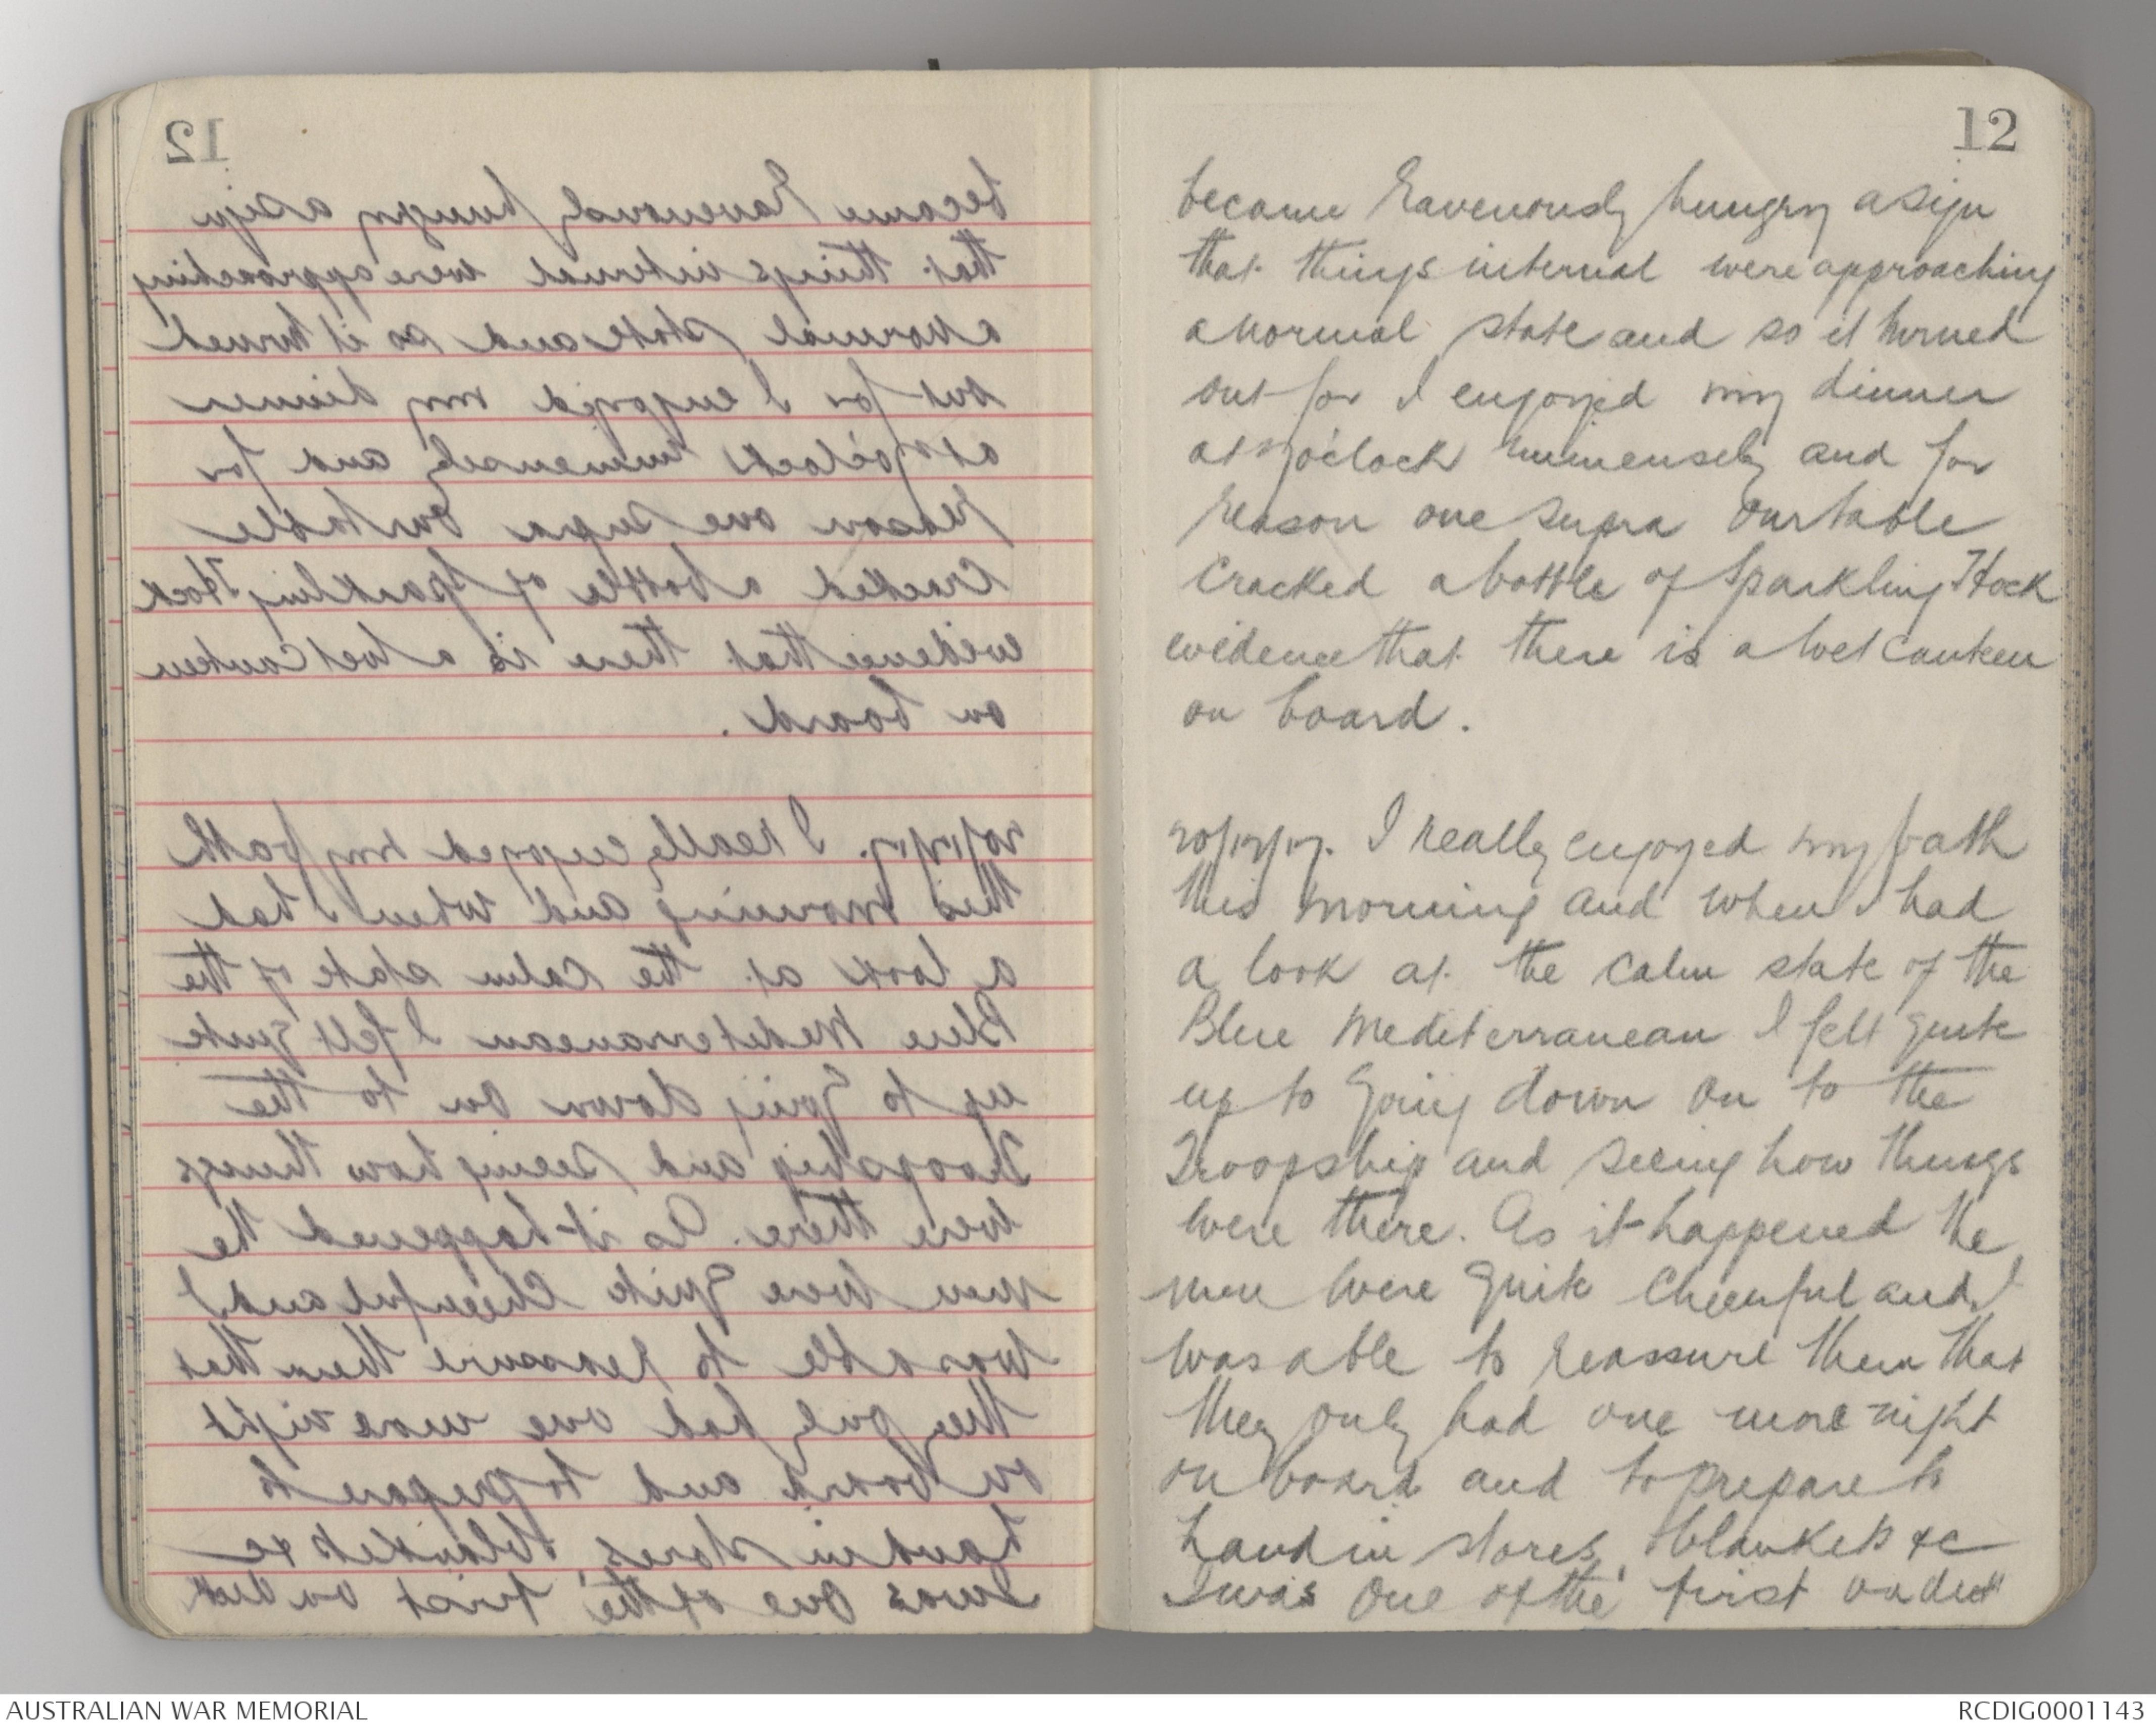 12
became ravenously hungry a sign
that things internal were approaching
a normal state and so it turned
out for I enjoyed my dinner
at 7 o'clock immensely and for
reason one supra our table
cracked a bottle of Sparkling Hock
evidence that there is a wet canteen
on board.
I really enjoyed my bath
this morning and when I had
a look at the calm state of the
Blue Mediterranean I felt quite
up to going down on to the
Troopship and seeing how things
were there. As it happened the
men were quite cheerful and I
was able to reassure them that
they only had one more night
on board and to prepare to
hand in stores, blankets &c
I was one of the first on deck
AUSTRALIAN WAR MEMORIAL
RCDIG0001143